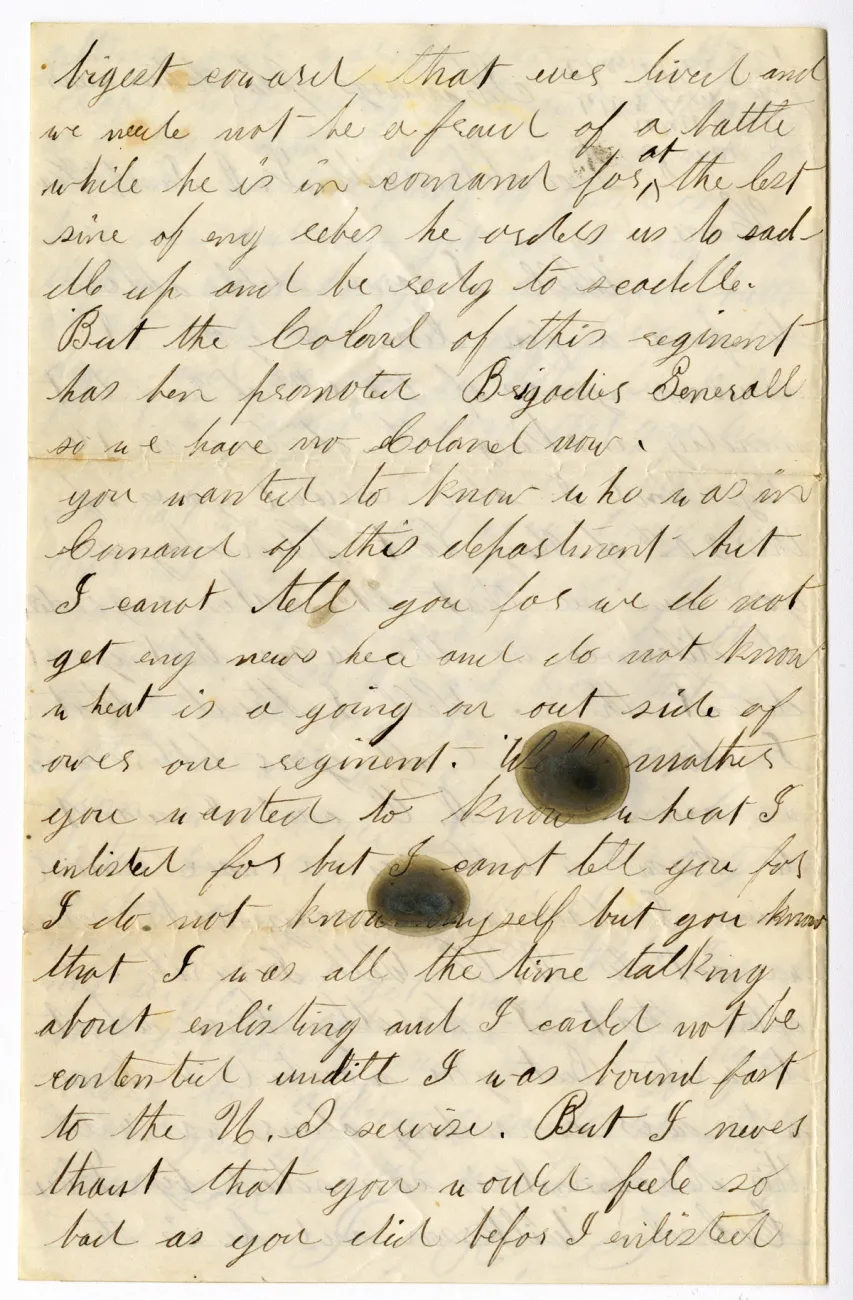 bigest coward that ever lived and
we neede not be a fraud of a battle
while he is in comand for at the lest
sine of eny rebes he orders us to sad-
dle up and be redy to scaddle.
But the Colonel of this regiment
has ben promoted Brigadier Generall
so we have no Colonel now.
you wanted to know who was in
Comand of this department but
I canot tell you for we do not
get eny news hea and do not know
wheat is a going on out side of
ower one regiment. Well mother
you wanted to know wheat I
enlisted for but I canot tell you for
I do not know myself but you know
that I was all the time talking
about enlisting and I could not be
contented undill I was bound fast
to the U. S servise. But I never
thaut that you would feele so
bad as you did befor I enlisted